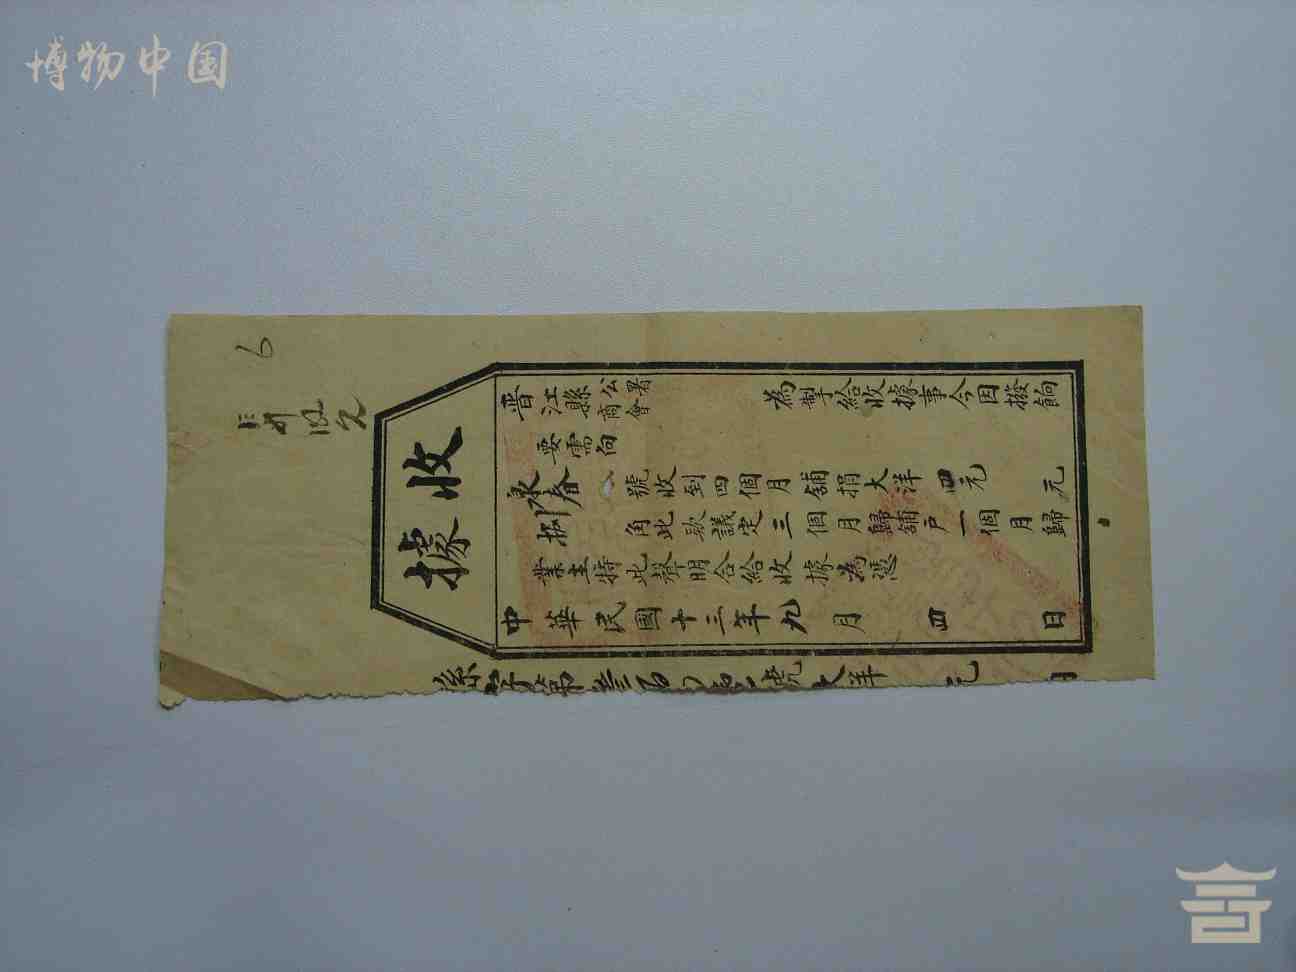 博物中国
6
收據
晋江縣公署商會為制給收據事今因撥餉
要需向
永春號收到四個月舖捐大洋四元
捌角此款議定三個月歸舖戶一個月歸
業主特此聲明合給收據為憑
中華民國十三年九月四日